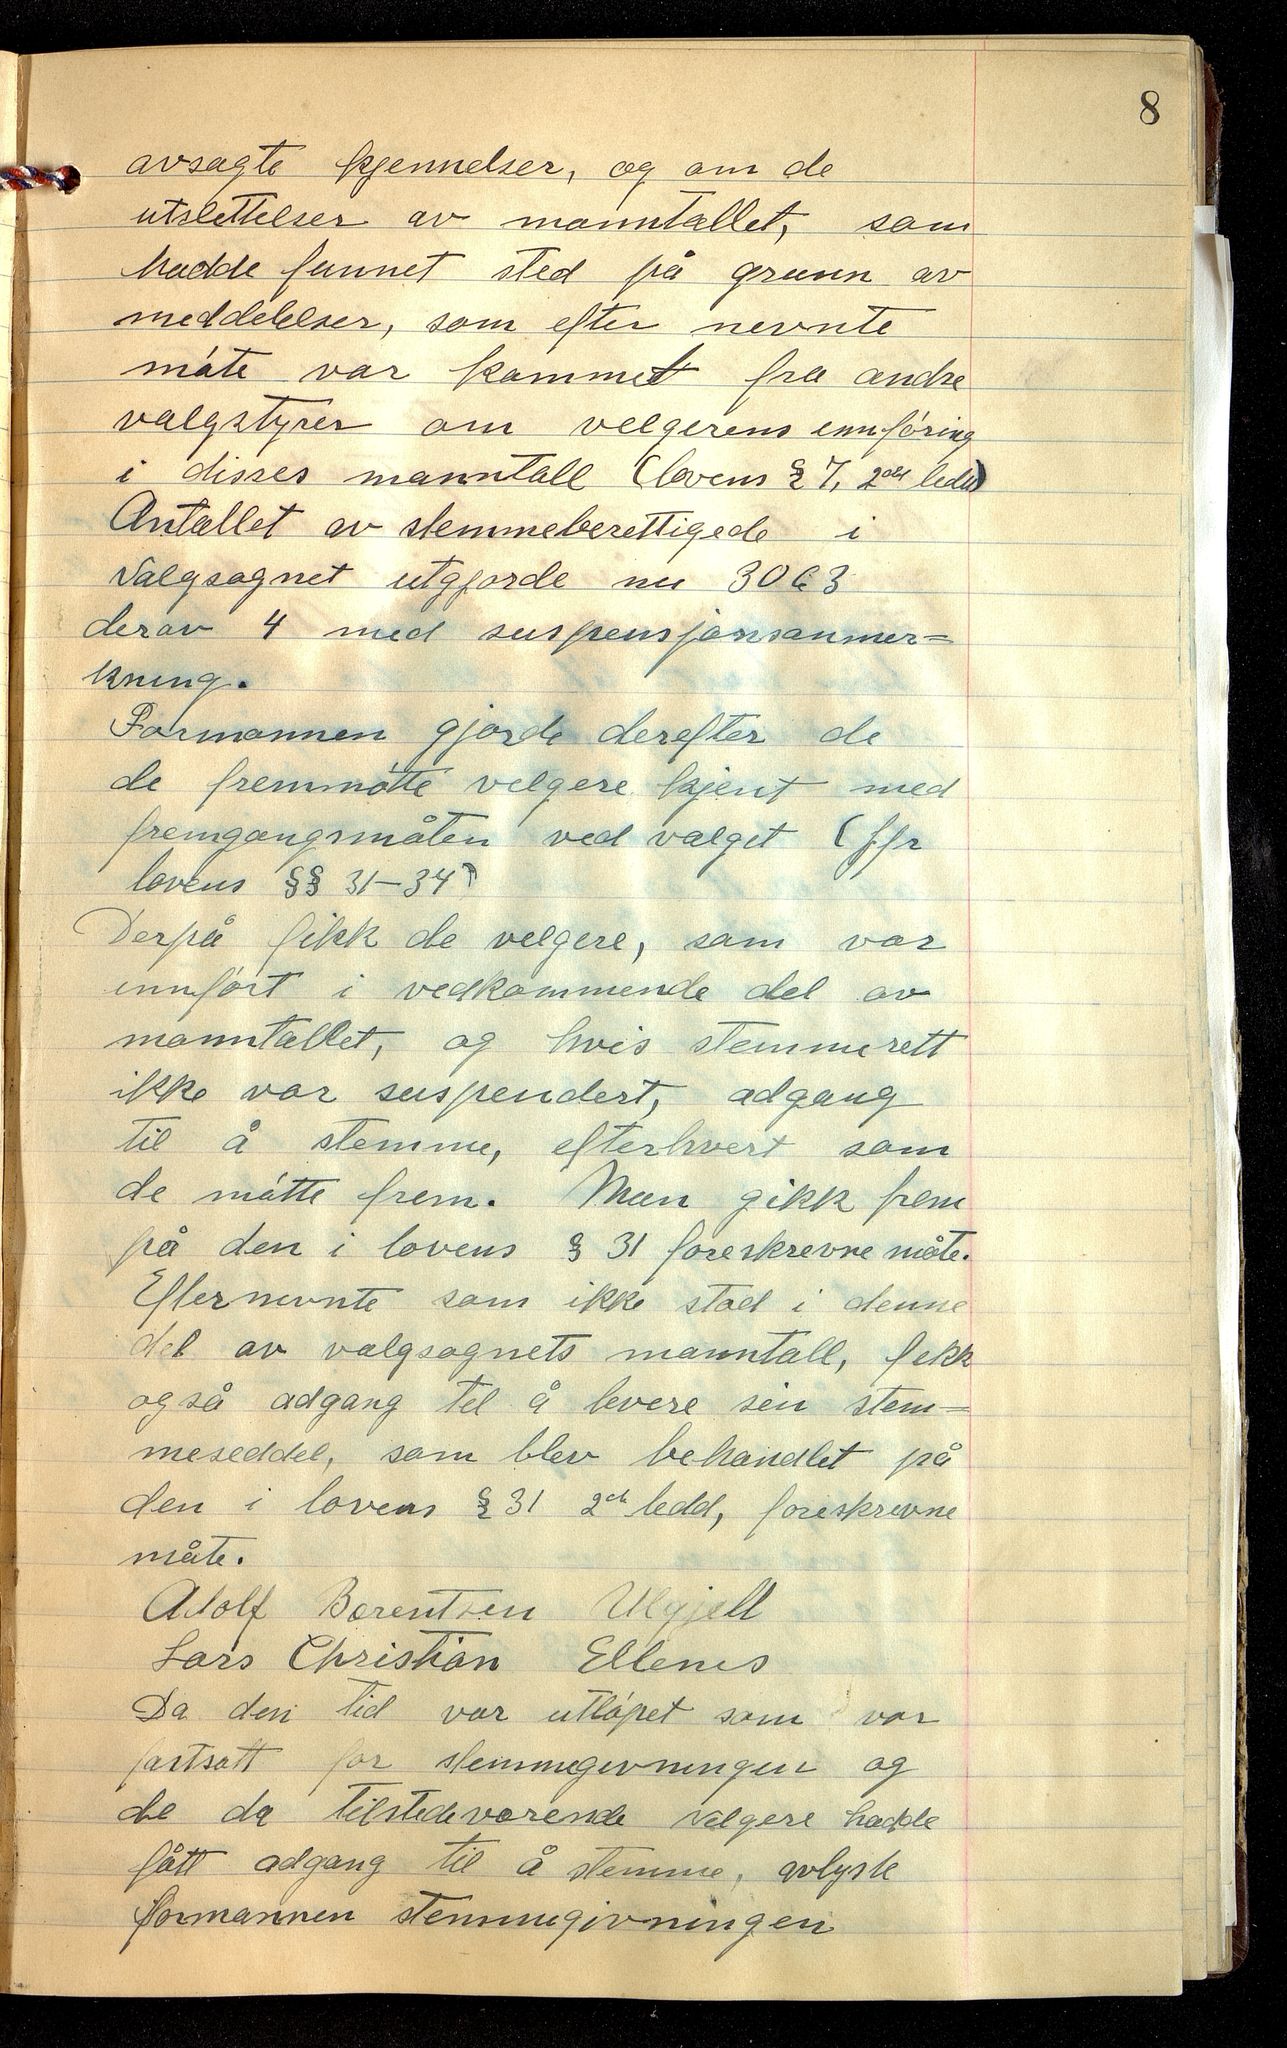 8
avsagte kjennelser, og om de
utslettelser av manntallet, som
hadde funnet sted på grunn av
meddelelser, som efter nevnte
måte var kommet fra andre
valgstyrer om velgerens innføring
i disses manntall (lovens § 7, 2det ledd)
Antallet av stemmeberettigede i
Valgsognet utgjorde nu 3063
derav 4 med suspensjonsanmer=
kning.
Formannen gjorde derefter de
de fremmøtte velgere kjent med
fremgangsmåten ved valget (jfr
lovens §§ 31-34)
Derpå fikk de velgere, som var
innført i vedkommende del av
manntallet, og hvis stemmerett
ikke var suspendert, adgang
til å stemme, efterhvert som
de møtte frem. Man gikk frem
på den i lovens § 31 foreskrevne måte.
Efternevnte som ikke stod i denne
del av valgsognets manntall, fikk
også adgang til å levere sin stem=
meseddel, som blev behandlet på
den i lovens § 31 2det ledd, foreskrevne
måte.
Adolf Berentsen Ulgjell
Lars Christian Ellenes
Da den tid var utløpet som var
fastsatt for stemmegivningen og
de da tilstedeværende velgere hadde
fått adgang til å stemme, avlyste
formannen stemmegivningen